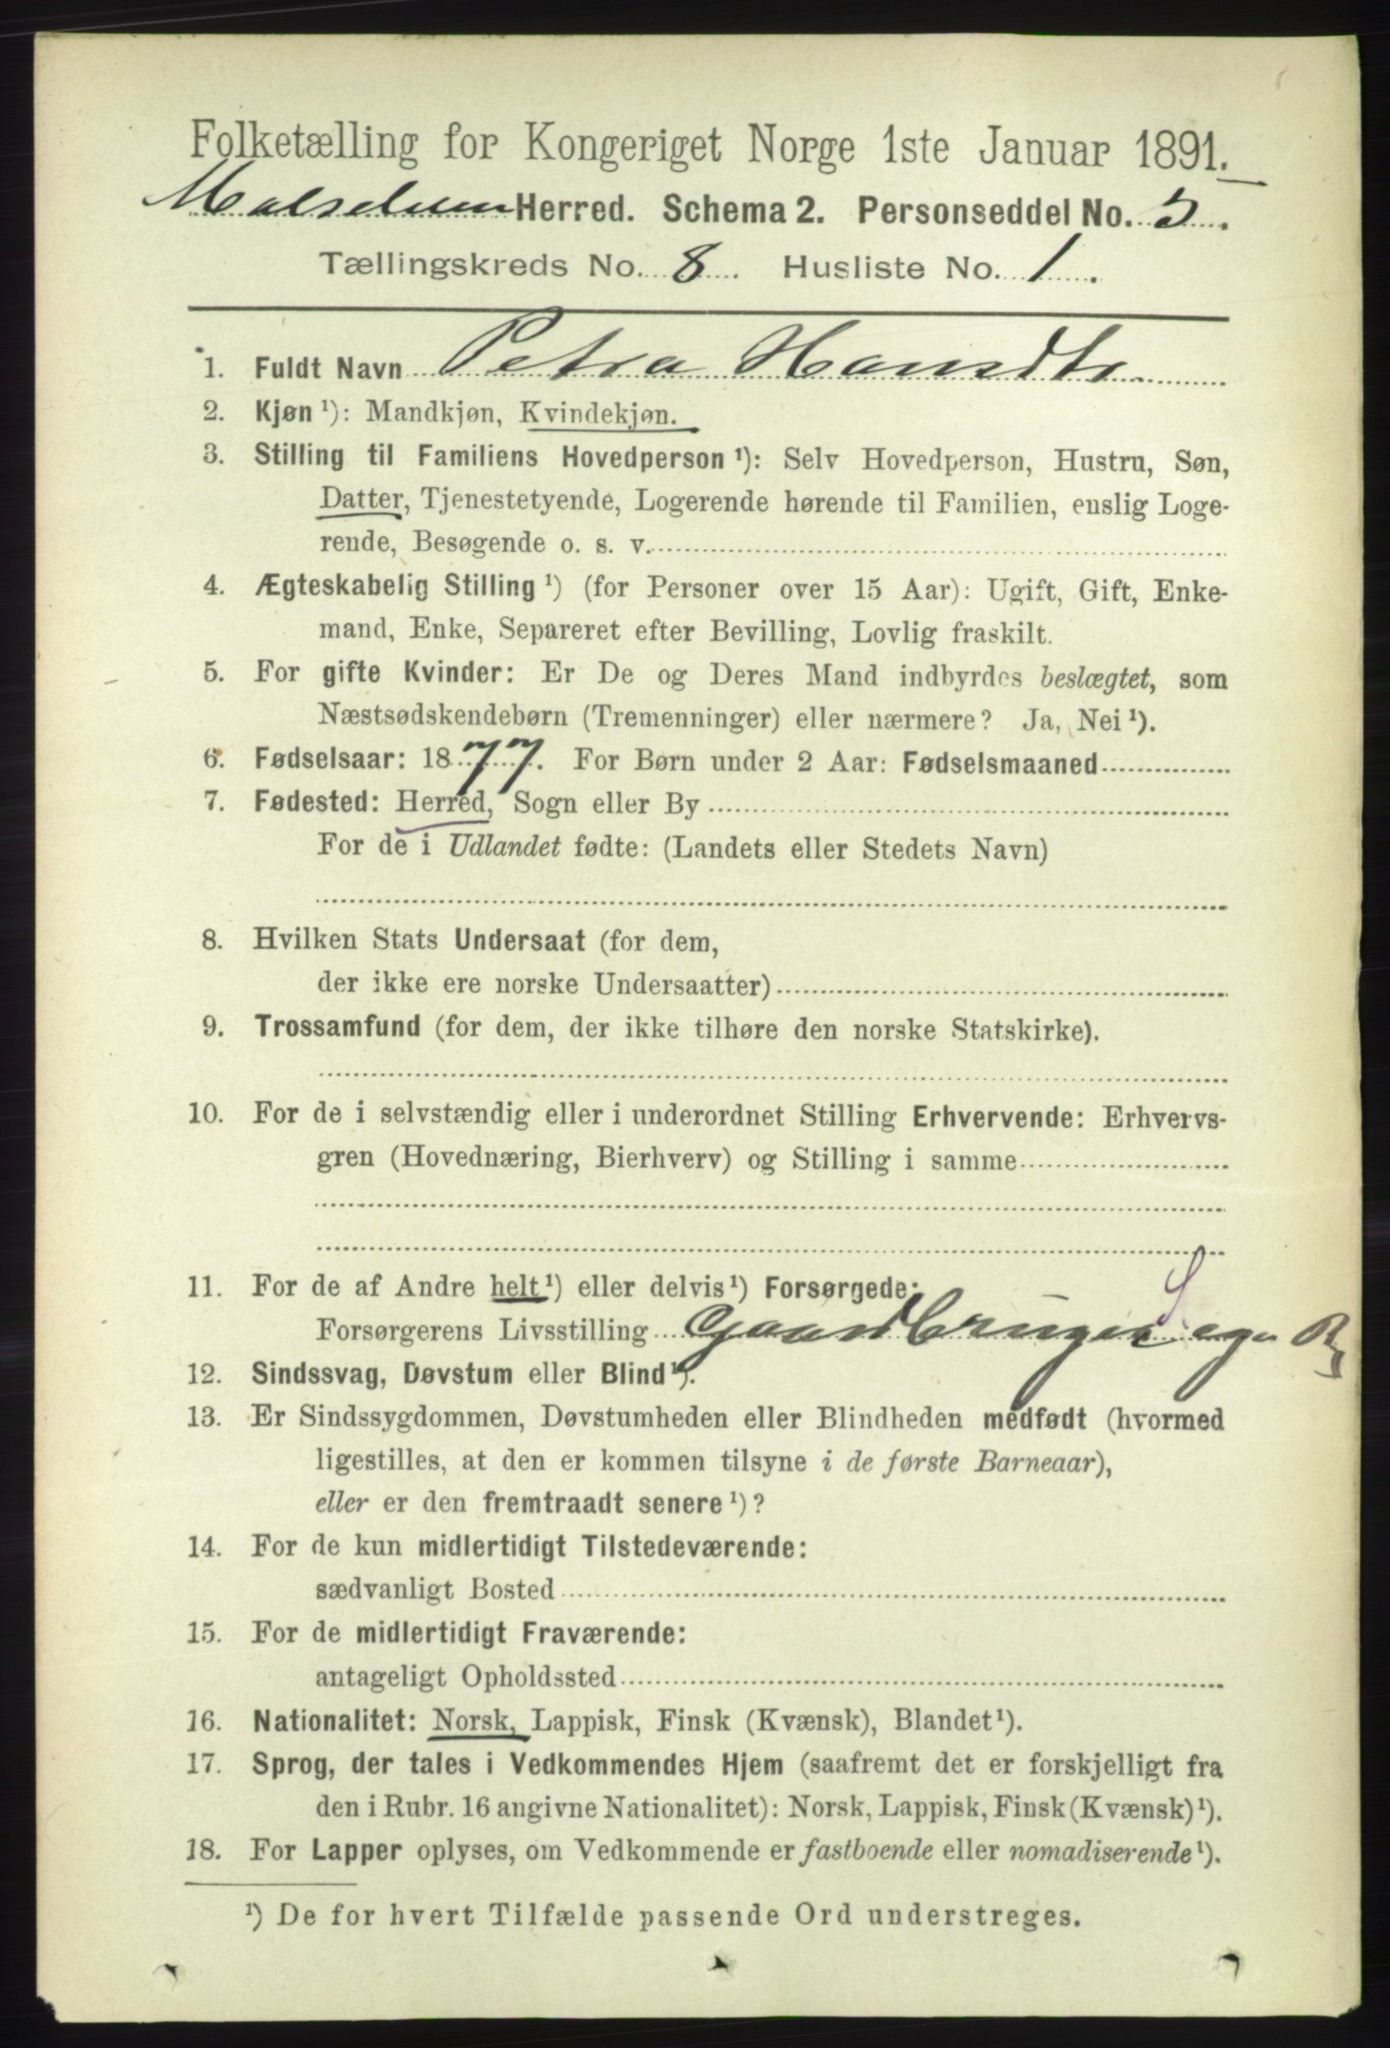 Folketælling for Kongeriget Norge 1ste Januar 1891.
Malselven Herred. Schema 2. Personseddel No. 5.
Tællingskreds No. 8. Husliste No. 1.
1. Fuldt Navn Petra Hansdtr
2. Kjøn ¹): Mandkjøn, Kvindekjøn.
3. Stilling til Familiens Hovedperson ¹): Selv Hovedperson, Hustru, Søn,
Datter, Tjenestetyende, Logerende hørende til Familien, enslig Loge-
rende, Besøgende o. s. v.
4. Ægteskabelig Stilling ¹) (for Personer over 15 Aar): Ugift, Gift, Enke-
mand, Enke, Separeret efter Bevilling, Lovlig fraskilt.
5. For gifte Kvinder: Er De og Deres Mand indbyrdes beslægtet, som
Næstsødskendebørn (Tremenninger) eller nærmere? Ja, Nei ¹).
6. Fødselsaar: 1877. For Børn under 2 Aar: Fødselsmaaned
7. Fødested: Herred, Sogn eller By
For de i Udlandet fødte: (Landets eller Stedets Navn)
8. Hvilken Stats Undersaat (for dem,
der ikke ere norske Undersaatter)
9. Trossamfund (for dem, der ikke tilhøre den norske Statskirke).
10. For de i selvstændig eller i underordnet Stilling Erhvervende: Erhvervs-
gren (Hovednæring, Bierhverv) og Stilling i samme
11. For de af Andre helt ¹) eller delvis ¹) Forsørgede: S
Forsørgerens Livsstilling Gaardbruger egen
12. Sindssvag, Døvstum eller Blind ¹).
13. Er Sindssygdommen, Døvstumheden eller Blindheden medfødt (hvormed
ligestilles, at den er kommen tilsyne i de første Barneaar),
eller er den fremtraadt senere ¹)?
14. For de kun midlertidigt Tilstedeværende:
sædvanligt Bosted
15. For de midlertidigt Fraværende:
antageligt Opholdssted
16. Nationalitet: Norsk, Lappisk, Finsk (Kvænsk), Blandet ¹).
17. Sprog, der tales i Vedkommendes Hjem (saafremt det er forskjelligt fra
den i Rubr. 16 angivne Nationalitet): Norsk, Lappisk, Finsk (Kvænsk) ¹).
18. For Lapper oplyses, om Vedkommende er fastboende eller nomadiserende ¹).
¹) De for hvert Tilfælde passende Ord understreges.